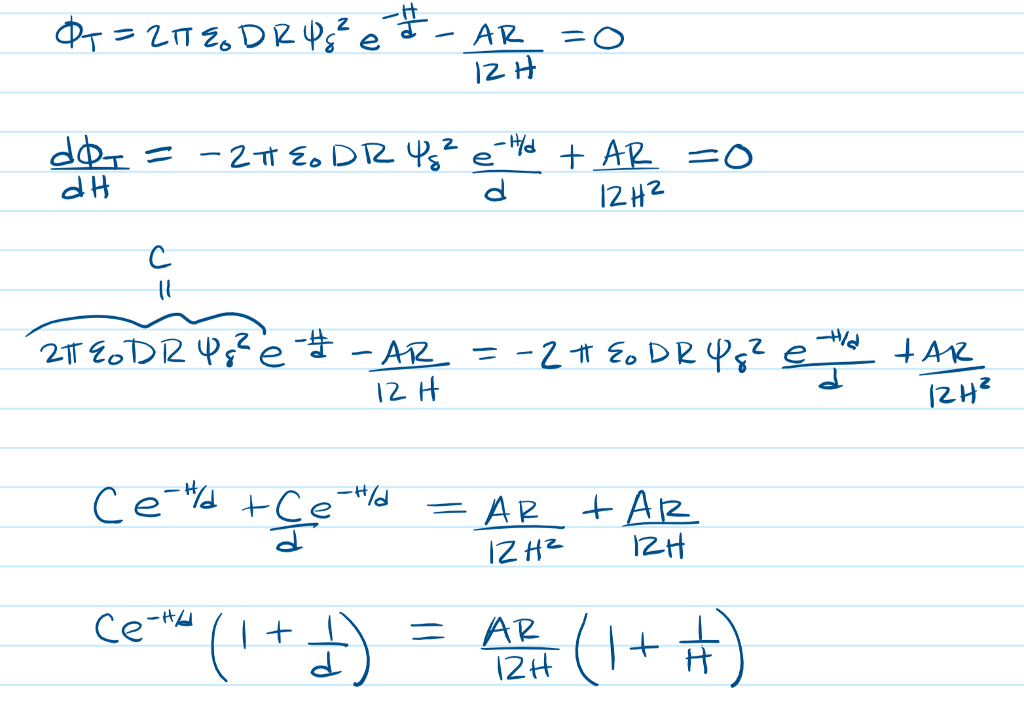 Φ_T = 2π ε₀ D R ψ_δ² e^{-H/d} - AR/12H = 0
dΦ_T/dH = -2π ε₀ D R ψ_δ² e^{-H/d}/d + AR/12H² = 0
C
=
2π ε₀ D R ψ_δ² e^{-H/d} - AR/12H = -2π ε₀ D R ψ_δ² e^{-H/d}/d + AR/12H²
C e^{-H/d} + C e^{-H/d}/d = AR/12H² + AR/12H
C e^{-H/d} (1 + 1/d) = AR/12H (1 + 1/H)